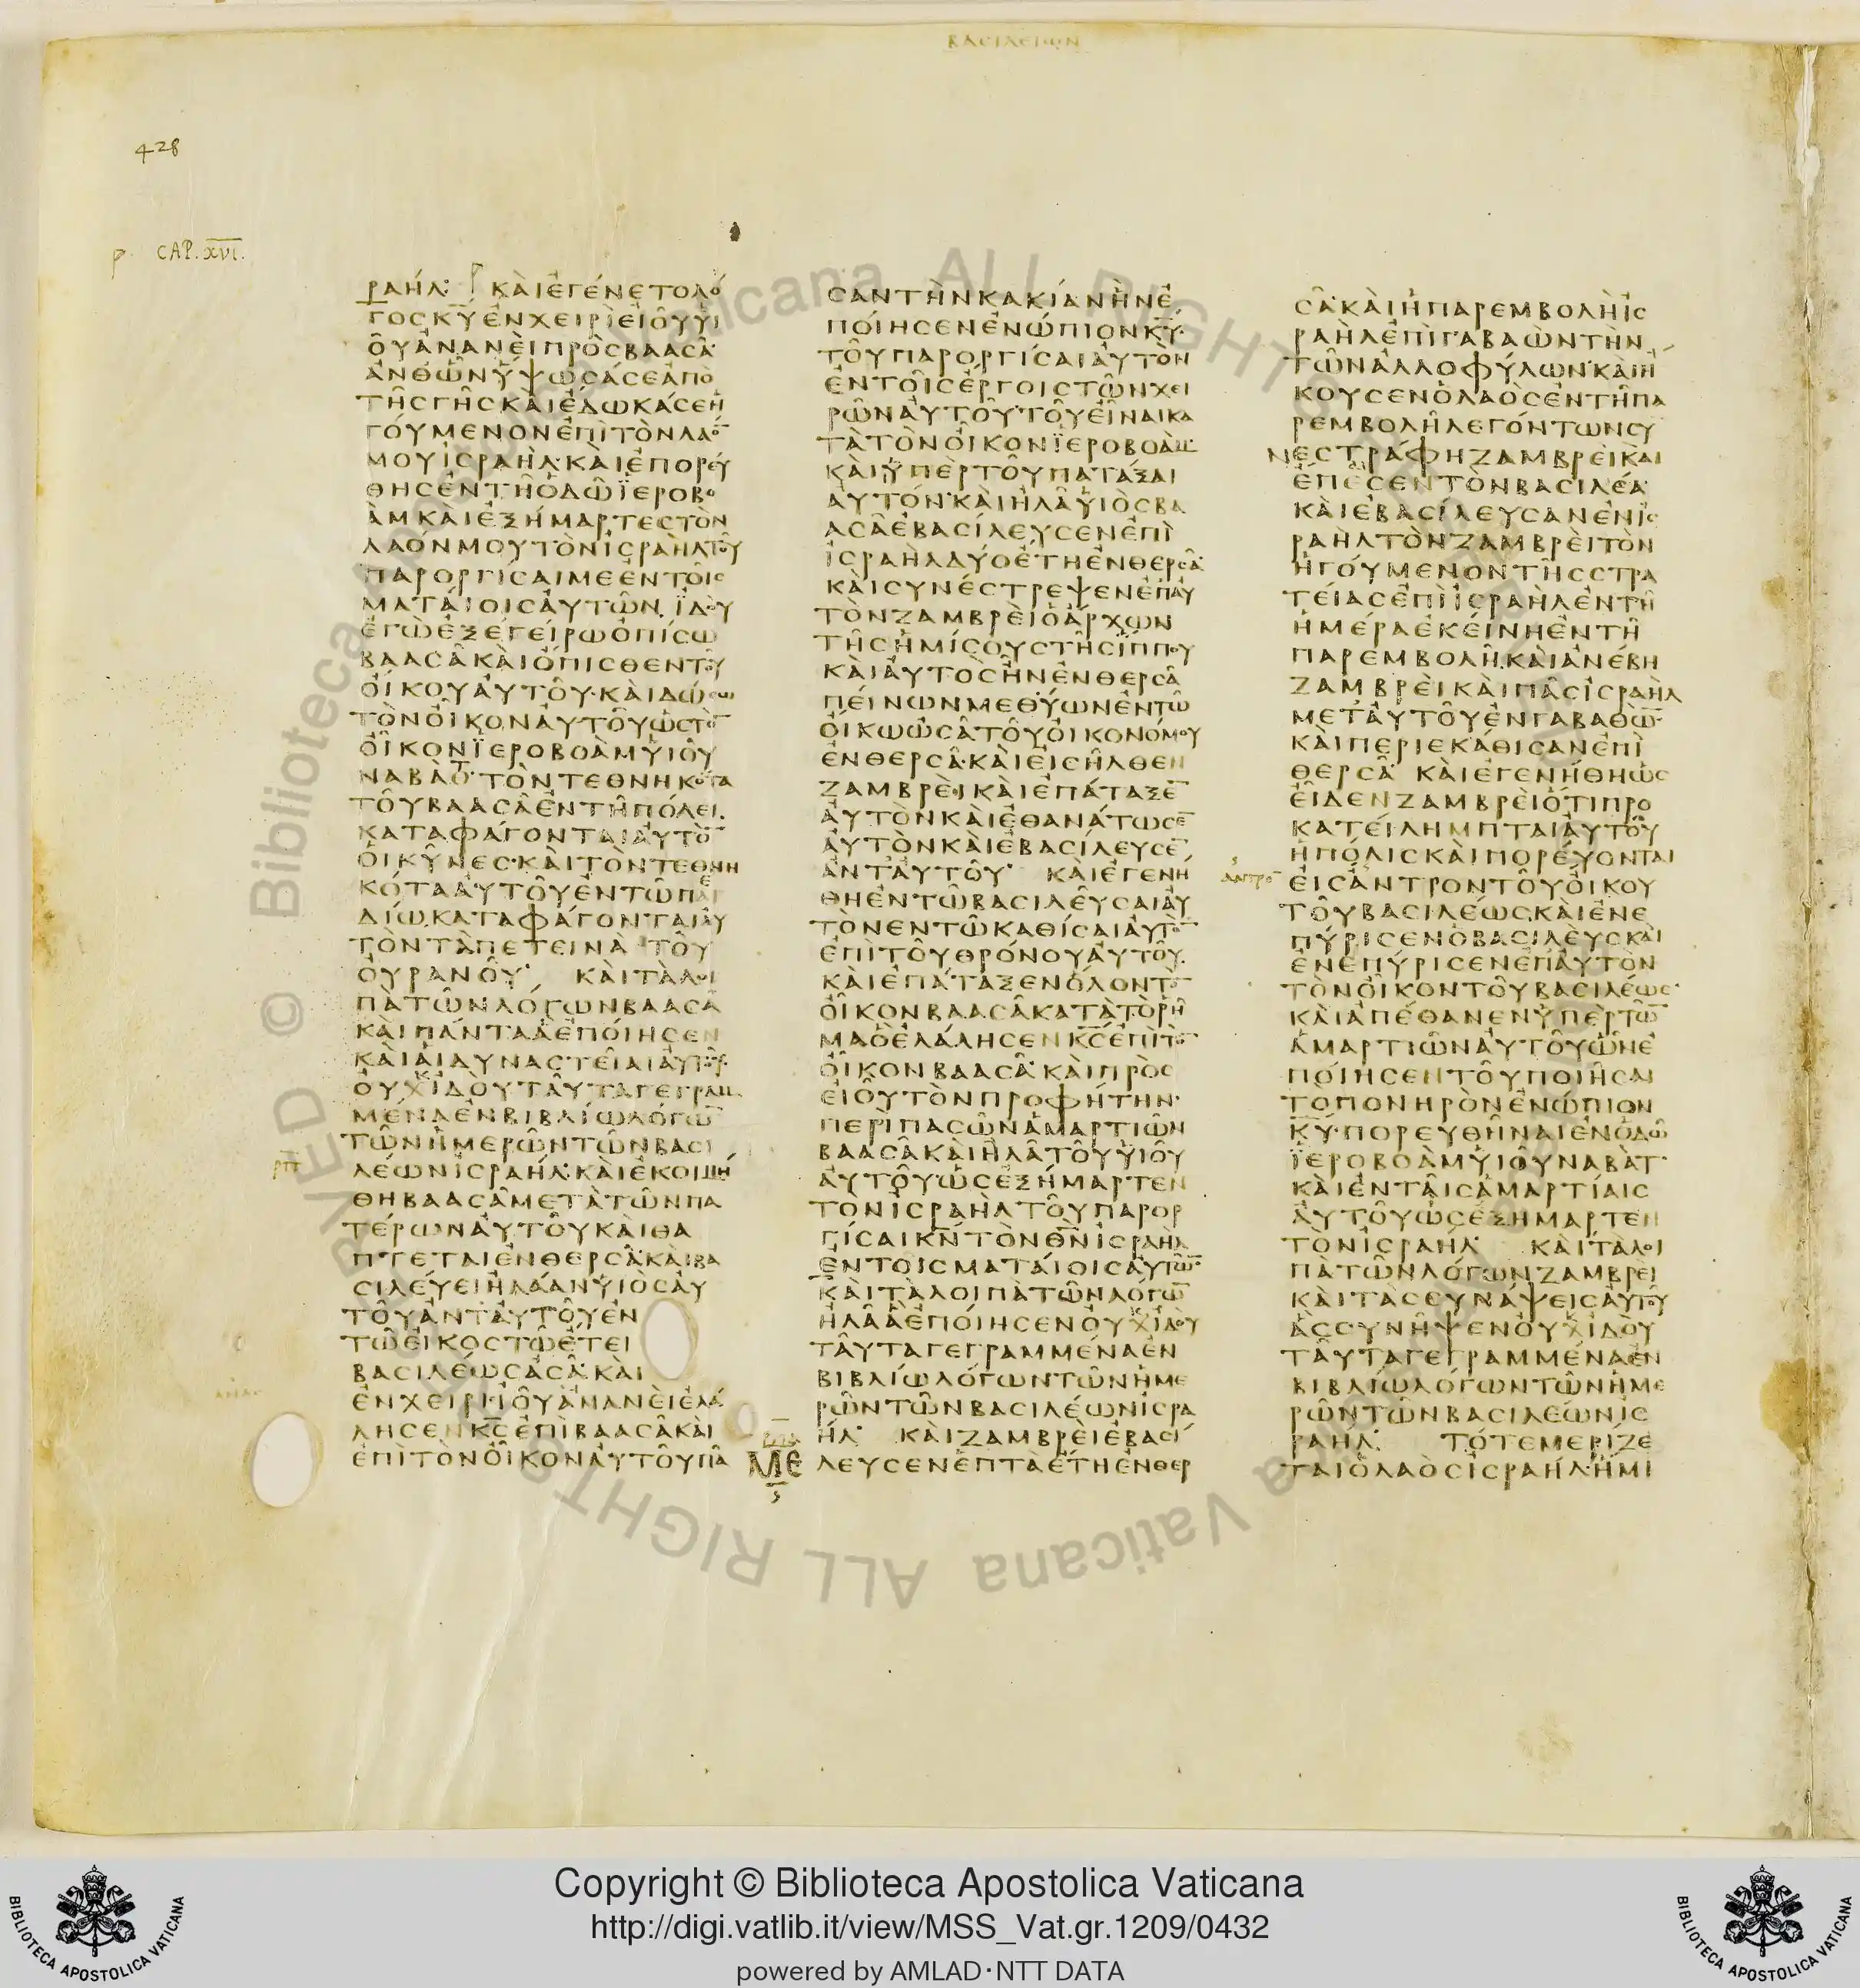 ΒΑϹΙΛΕΙΩΝ
428
p. CAP. XVI.
ΡΑΗΛ· ΚΑΙΕΓΕΝΕΤΟΛΟ
ΓΟϹΚΥΕΝΧΕΙΡΙΕΙΟΥΥΙ
ΟΥΑΝΑΝΕΙΠΡΟϹΒΑΑϹΑ
ΑΝΘΩΝΥΨΩϹΑϹΕΑΠΟ
ΤΗϹΓΗϹΚΑΙΕΔΩΚΑϹΕΗ
ΓΟΥΜΕΝΟΝΕΠΙΤΟΝΛΑΟ̅
ΜΟΥΙϹΡΑΗΛ·ΚΑΙΕΠΟΡΕΥ
ΘΗϹΕΝΤΗΟΔΩΪΕΡΟΒΟ
ΑΜΚΑΙΕΞΗΜΑΡΤΕϹΤΟΝ
ΛΑΟΝΜΟΥΤΟΝΙϹΡΑΗΛΤΟΥ
ΠΑΡΟΡΓΙϹΑΙΜΕΕΝΤΟΙϹ
ΜΑΤΑΙΟΙϹΑΥΤΩΝ·ΪΔΟΥ
ΕΓΩΕΞΕΓΕΙΡΩΟΠΙϹΩ
ΒΑΑϹΑΚΑΙΟΠΙϹΘΕΝΤΟΥ
ΟΙΚΟΥΑΥΤΟΥ·ΚΑΙΔΩϹΩ
ΤΟΝΟΙΚΟΝΑΥΤΟΥΩϹΤΟ̅
ΟΙΚΟΝΪΕΡΟΒΟΑΜΥΙΟΥ
ΝΑΒΑΤ·ΤΟΝΤΕΘΝΗΚΟΤΑ
ΤΟΥΒΑΑϹΑΕΝΤΗΠΟΛΕΙ
ΚΑΤΑΦΑΓΟΝΤΑΙΑΥΤΟ̅
ΟΙΚΥΝΕϹ·ΚΑΙΤΟΝΤΕΘΝΗ
ΚΟΤΑΑΥΤΟΥΕΝΤΩΠΑΙ
ΔΙΩΚΑΤΑΦΑΓΟΝΤΑΙΑΥ
ΤΟΝΤΑΠΕΤΕΙΝΑΤΟΥ
ΟΥΡΑΝΟΥ· ΚΑΙΤΑΛΟΙ
ΠΑΤΩΝΛΟΓΩΝΒΑΑϹΑ
ΚΑΙΠΑΝΤΑΑΕΠΟΙΗϹΕΝ
ΚΑΙΑΙΔΥΝΑϹΤΕΙΑΙΑΥΤΟΥ·
ΟΥΧΙΔΟΥΤΑΥΤΑΓΕΓΡΑΜ
ΜΕΝΑΕΝΒΙΒΛΙΩΛΟΓΩ̅
ΤΩΝΗΜΕΡΩΝΤΩΝΒΑϹΙ
ΛΕΩΝΙϹΡΑΗΛ·ΚΑΙΕΚΟΙΜΗ
ΘΗΒΑΑϹΑΜΕΤΑΤΩΝΠΑ
ΤΕΡΩΝΑΥΤΟΥΚΑΙΘΑ
ΠΤΕΤΑΙΕΝΘΕΡϹΑ·ΚΑΙΒΑ
ϹΙΛΕΥΕΙΗΛΑΑΝΥΙΟϹΑΥ
ΤΟΥΑΝΤΑΥΤΟΥΕΝ
ΤΩΕΙΚΟϹΤΩΕΤΕΙ
ΒΑϹΙΛΕΩϹΑϹΑ·ΚΑΙ
ΕΝΧΕΙΡΙΪΟΥΑΜΑΝΕΙΕΛΑ
ΛΗϹΕΝΚϹΕΠΙΒΑΑϹΑΚΑΙ
ΕΠΙΤΟΝΟΙΚΟΝΑΥΤΟΥΠΑ
ϹΑΝΤΗΝΚΑΚΙΑΝΗΝΕ
ΠΟΙΗϹΕΝΕΝΩΠΙΟΝΚΥ·
ΤΟΥΠΑΡΟΡΓΙϹΑΙΑΥΤΟΝ
ΕΝΤΟΙϹΕΡΓΟΙϹΤΩΝΧΕΙ
ΡΩΝΑΥΤΟΥ·ΤΟΥΕΙΝΑΙΚΑ
ΤΑΤΟΝΟΙΚΟΝΪΕΡΟΒΟΑΜ·
ΚΑΙΥΠΕΡΤΟΥΠΑΤΑΞΑΙ
ΑΥΤΟΝ·ΚΑΙΗΛΑΥΙΟϹΒΑ
ΑϹΑΕΒΑϹΙΛΕΥϹΕΝΕΠΙ
ΙϹΡΑΗΛΔΥΟΕΤΗΕΝΘΕΡϹΑ·
ΚΑΙϹΥΝΕϹΤΡΕΨΕΝΕΠΑΥ
ΤΟΝΖΑΜΒΡΕΙΟΑΡΧΩΝ
ΤΗϹΗΜΙϹΟΥϹΤΗϹΙΠΠΟΥ
ΚΑΙΑΥΤΟϹΗΝΕΝΘΕΡϹΑ
ΠΕΙΝΩΝΜΕΘΥΩΝΕΝΤΩ
ΟΙΚΩΩϹΑΤΟΥΟΙΚΟΝΟΜΟΥ
ΕΝΘΕΡϹΑ·ΚΑΙΕΙϹΗΛΘΕΝ
ΖΑΜΒΡΕΙΚΑΙΕΠΑΤΑΞΕ̅
ΑΥΤΟΝΚΑΙΕΘΑΝΑΤΩϹΕ̅
ΑΥΤΟΝΚΑΙΕΒΑϹΙΛΕΥϹΕ̅
ΑΝΤΑΥΤΟΥ· ΚΑΙΕΓΕΝΗ
ΘΗΕΝΤΩΒΑϹΙΛΕΥϹΑΙΑΥ
ΤΟΝΕΝΤΩΚΑΘΙϹΑΙΑΥΤΟ̅
ΕΠΙΤΟΥΘΡΟΝΟΥΑΥΤΟΥ
ΚΑΙΕΠΑΤΑΞΕΝΟΛΟΝΤΟ̅
ΟΙΚΟΝΒΑΑϹΑΚΑΤΑΤΟΡΗ
ΜΑΟΕΛΑΛΗϹΕΝΚϹΕΠΙΤΟ̅
ΟΙΚΟΝΒΑΑϹΑ·ΚΑΙΠΡΟϹ
ΕΙΟΥΤΟΝΠΡΟΦΗΤΗΝ·
ΠΕΡΙΠΑϹΩΝΑΜΑΡΤΙΩΝ
ΒΑΑϹΑΚΑΙΗΛΑΤΟΥΥΙΟΥ
ΑΥΤΟΥΩϹΕΞΗΜΑΡΤΕΝ
ΤΟΝΙϹΡΑΗΛΤΟΥΠΑΡΟΡ
ΓΙϹΑΙΚΝΤΟΝΘΝΙϹΡΑΗΛ
ΕΝΤΟΙϹΜΑΤΑΙΟΙϹΑΥΤΩ̅
ΚΑΙΤΑΛΟΙΠΑΤΩΝΛΟΓΩ̅
ΗΛΑΑΕΠΟΙΗϹΕΝΟΥΧΙΔΟΥ
ΤΑΥΤΑΓΕΓΡΑΜΜΕΝΑΕΝ
ΒΙΒΛΙΩΛΟΓΩΝΤΩΝΗΜΕ
ΡΩΝΤΩΝΒΑϹΙΛΕΩΝΙϹΡΑ
ΗΛ· ΚΑΙΖΑΜΒΡΕΙΕΒΑϹΙ
ΜΕ ΛΕΥϹΕΝΕΠΤΑΕΤΗΕΝΘΕΡ
ϹΑ·ΚΑΙΗΠΑΡΕΜΒΟΛΗΙϹ
ΡΑΗΛΕΠΙΓΑΒΑΩΝΤΗΝ
ΤΩΝΑΛΛΟΦΥΛΩΝ·ΚΑΙΗ
ΚΟΥϹΕΝΟΛΑΟϹΕΝΤΗΠΑ
ΡΕΜΒΟΛΗΛΕΓΟΝΤΩΝϹΥ
ΝΕϹΤΡΑΦΗΖΑΜΒΡΕΙΚΑΙ
ΕΠΕϹΕΝΤΟΝΒΑϹΙΛΕΑ
ΚΑΙΕΒΑϹΙΛΕΥϹΑΝΕΝΙϹ
ΡΑΗΛΤΟΝΖΑΜΒΡΕΙΤΟΝ
ΗΓΟΥΜΕΝΟΝΤΗϹϹΤΡΑ
ΤΕΙΑϹΕΠΙΙϹΡΑΗΛΕΝΤΗ
ΗΜΕΡΑΕΚΕΙΝΗΕΝΤΗ
ΠΑΡΕΜΒΟΛΗ·ΚΑΙΑΝΕΒΗ
ΖΑΜΒΡΕΙΚΑΙΠΑϹΙϹΡΑΗΛ
ΜΕΤΑΥΤΟΥΕΝΓΑΒΑΘΩ̅·
ΚΑΙΠΕΡΙΕΚΑΘΙϹΑΝΕΠΙ
ΘΕΡϹΑ ΚΑΙΕΓΕΝΗΘΗΩϹ
ΕΙΔΕΝΖΑΜΒΡΕΙΟΤΙΠΡΟ
ΚΑΤΕΙΛΗΜΠΤΑΙΑΥΤΟΥ
ΗΠΟΛΙϹΚΑΙΠΟΡΕΥΟΝΤΑΙ
ΕΙϹΑΝΤΡΟΝΤΟΥΟΙΚΟΥ
ΤΟΥΒΑϹΙΛΕΩϹΚΑΙΕΝΕ
ΠΥΡΙϹΕΝΟΒΑϹΙΛΕΥϹΚΑΙ
ΕΝΕΠΥΡΙϹΕΝΕΠΑΥΤΟΝ
ΤΟΝΟΙΚΟΝΤΟΥΒΑϹΙΛΕΩϹ·
ΚΑΙΑΠΕΘΑΝΕΝΥΠΕΡΤΩ̅
ΑΜΑΡΤΙΩΝΑΥΤΟΥΩΝΕ
ΠΟΙΗϹΕΝΤΟΥΠΟΙΗϹΑΙ
ΤΟΠΟΝΗΡΟΝΕΝΩΠΙΟΝ
ΚΥ·ΠΟΡΕΥΘΗΝΑΙΕΝΟΔΩ
ΪΕΡΟΒΟΑΜΥΙΟΥΝΑΒΑΤ·
ΚΑΙΕΝΤΑΙϹΑΜΑΡΤΙΑΙϹ
ΑΥΤΟΥΩϹΕΞΗΜΑΡΤΕΝ
ΤΟΝΙϹΡΑΗΛ· ΚΑΙΤΑΛΟΙ
ΠΑΤΩΝΛΟΓΩΝΖΑΜΒΡΕΙ
ΚΑΙΤΑϹϹΥΝΑΨΕΙϹΑΥΤΟΥ
ΑϹϹΥΝΗΨΕΝΟΥΧΙΔΟΥ
ΤΑΥΤΑΓΕΓΡΑΜΜΕΝΑΕΝ
ΒΙΒΛΙΩΛΟΓΩΝΤΩΝΗΜΕ
ΡΩΝΤΩΝΒΑϹΙΛΕΩΝΙϹ
ΡΑΗΛ· ΤΟΤΕΜΕΡΙΖΕ
ΤΑΙΟΛΑΟϹΙϹΡΑΗΛ·ΗΜΙ
© Biblioteca Apostolica Vaticana ALL RIGHTS RESERVED
Copyright © Biblioteca Apostolica Vaticana
http://digi.vatlib.it/view/MSS_Vat.gr.1209/0432
powered by AMLAD·NTT DATA
BIBLIOTECA APOSTOLICA VATICANA
BIBLIOTECA APOSTOLICA VATICANA